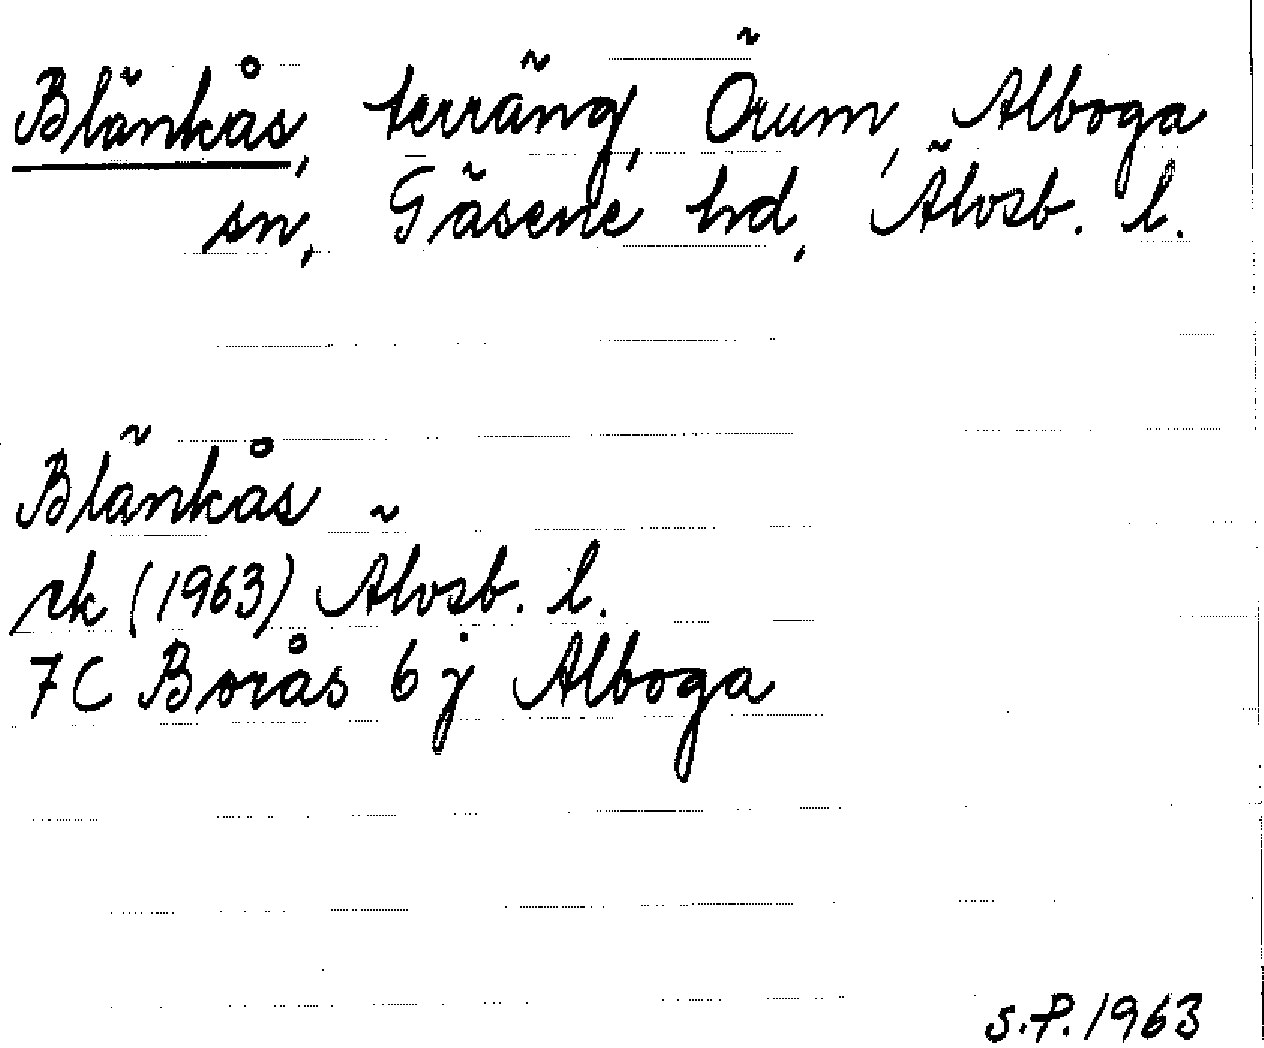 Blänkås, terräng, Örum, Alboga
sn, Gäsene hd, Älvsb. l.
Blänkås
rk (1963) Älvsb. l.
7C Borås 6 j Alboga
S.P. 1963